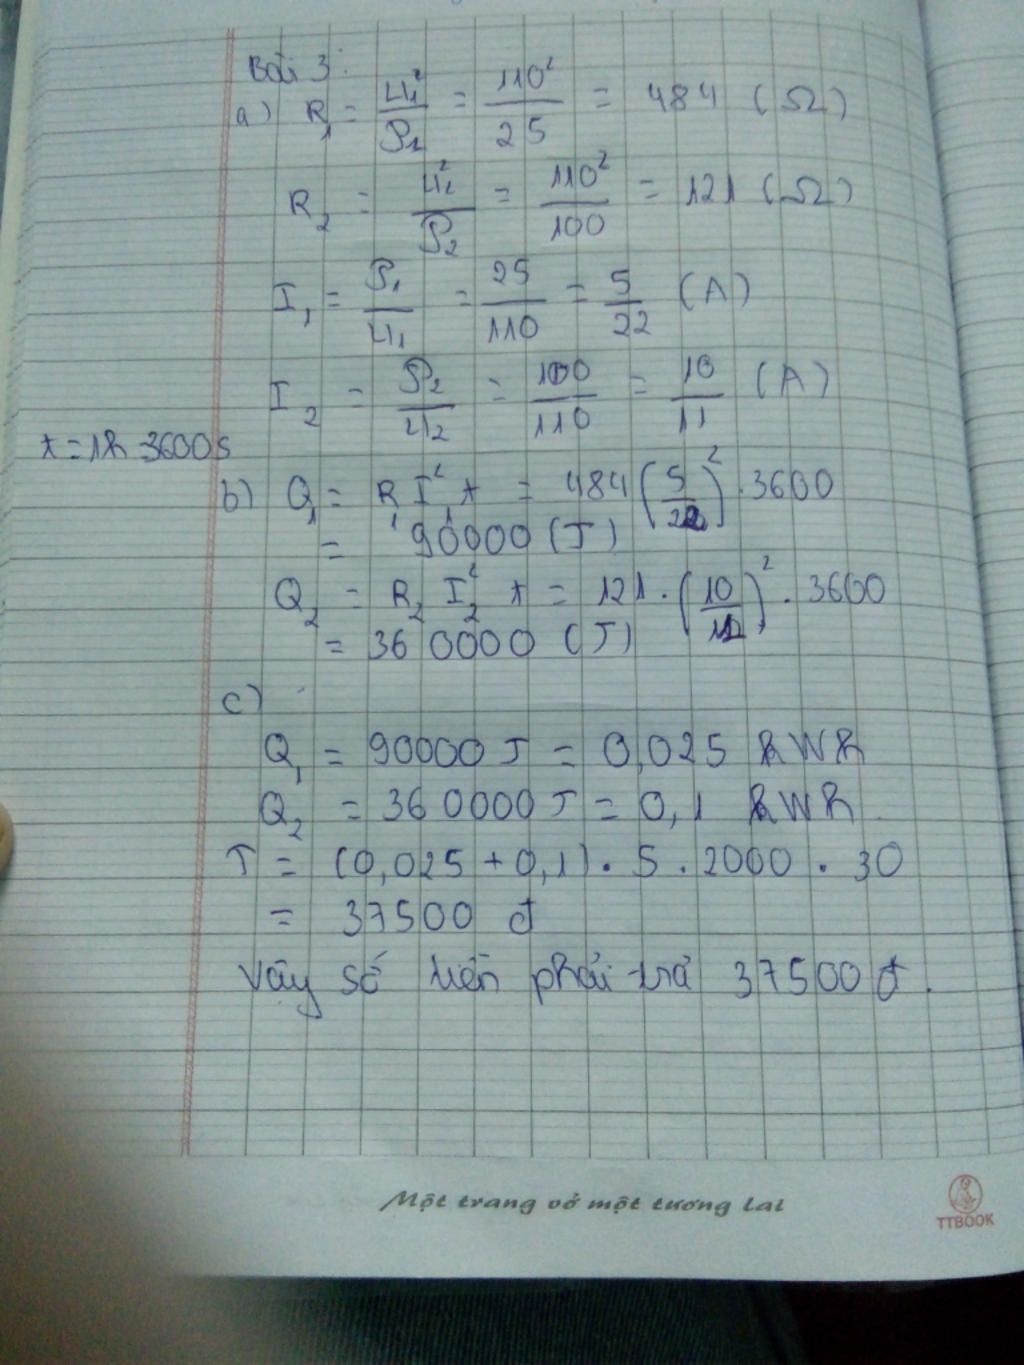 Bài 3:
a) R₁ = U₁²/P₁ = 110²/25 = 484 (Ω)
R₂ = U₂²/P₂ = 110²/100 = 121 (Ω)
I₁ = P₁/U₁ = 25/110 = 5/22 (A)
I₂ = P₂/U₂ = 100/110 = 10/11 (A)
t = 1h 3600s
b) Q₁ = R₁ I₁² t = 484 (5/22)² . 3600
= 90000 (J)
Q₂ = R₂ I₂² t = 121 . (10/11)² . 3600
= 360000 (J)
c)
Q₁ = 90000 J = 0,025 kWh
Q₂ = 360000 J = 0,1 kWh.
T = (0,025 + 0,1) . 5 . 2000 . 30
= 37500 đ
Vậy số tiền phải trả 37500 đ.
Một trang vở một tương lai
TTBOOK